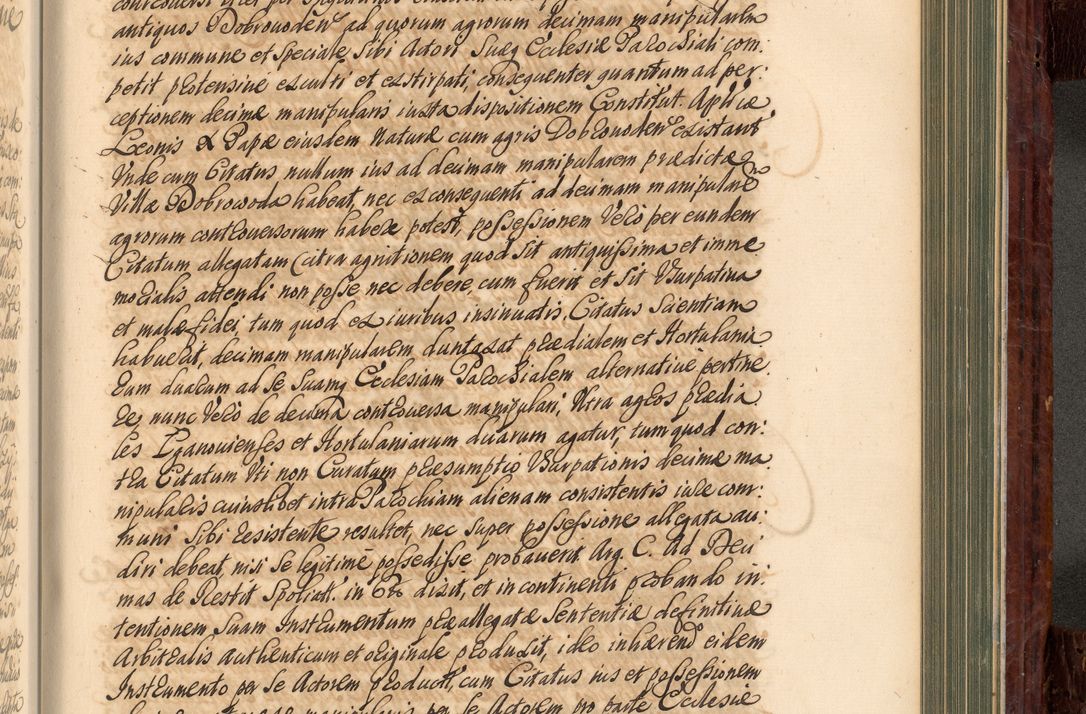 antiquos Dobrowoden: ad quorum agrorum decimam manipularem
ius commune et speciale sibi Actori Suæq Ecclesiæ Parochiali com:
petit protensive exculti et exstirpati, consequenter quantum ad per:
ceptionem decimæ manipularis iuxta dispositionem Constitut. Aplicæ
Leonis X Papæ eiusdem naturæ cum agris Dobrowoden: existant
Unde cum Citatus nullum ius ad decimam manipularem prædictæ
Villæ Dobrowoda habeat, nec ex consequenti ad decimam manipularem
agrorum controversorum habere potest, possessionem Verò per eundem
Citatum allegatam citra agnitionem quod sit antiquissima et imme
morialis attendi non posse nec debere, cum fuerit et sit Usurpativa
et malæ fidei, tum quod ex iuribus insinuatis, Citatus Scientiam
habuerit, decimam manipularem duntaxat prædialem et Hortulania
rum duarum ad se suamq Ecclesiam Parochialem alternative pertine
re, nunc Verò de decima controversa manipulari, Ultra agros prædia
les Lganovienses et Hortulaniarum duarum agatur, tum quod con:
tra Citatum Uti non Curatum præsumptio Usurpationis decimæ ma
nipularis cuiuslibet intra Parochiam alienam consistentis iure com:
muni sibi resistente resultet, nec super possessione allegata au:
diri debeat, nisi se legitimè possedisse probaverit Arg. C. Ad Deci
mas de Restit Spoliat. in 6to dixit, et in continenti probando in:
tentionem suam Instrumentum præallegatæ Sententiæ definitivæ
Arbitralis authenticum et originale produxit, ideo inhærend eidem
Instrumento per se Actorem product, cum Citatus ius et possessionem
manipularis per se Actorem pro parte Ecclesiæ